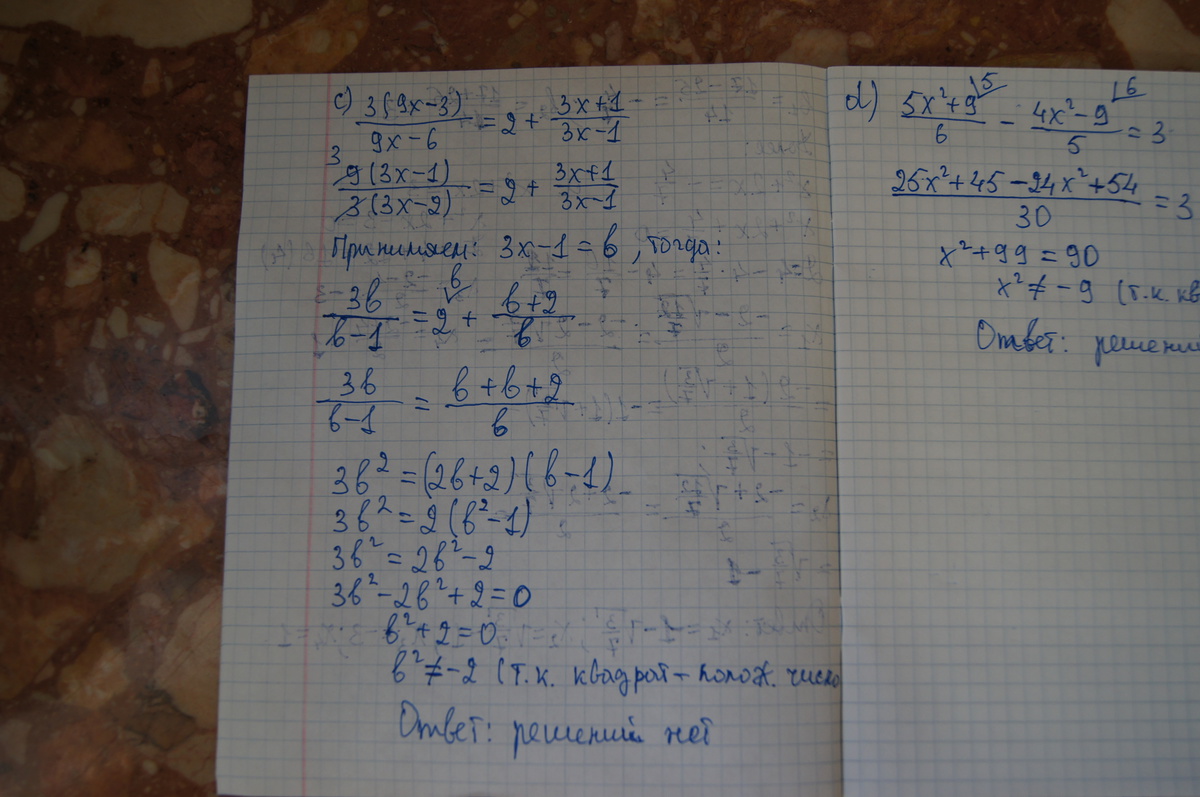 c) 3(9x-3)/9x-6 = 2 + 3x+1/3x-1
3 9(3x-1)/3(3x-2) = 2 + 3x+1/3x-1
Принимаем: 3x-1 = b, тогда:
3b/b-1 = 2 + b+2/b
3b/b-1 = b+b+2/b
3b² = (2b+2)(b-1)
3b² = 2(b²-1)
3b² = 2b²-2
3b²-2b²+2=0
b²+2=0
b² ≠ -2 (т.к. квадрат - полож. число
Ответ: решений нет
d) 5x²+9/6 - 4x²-9/5 = 3
25x²+45-24x²+54/30 = 3
x²+99=90
x² ≠ -9 (т.к. кв
Ответ: решени